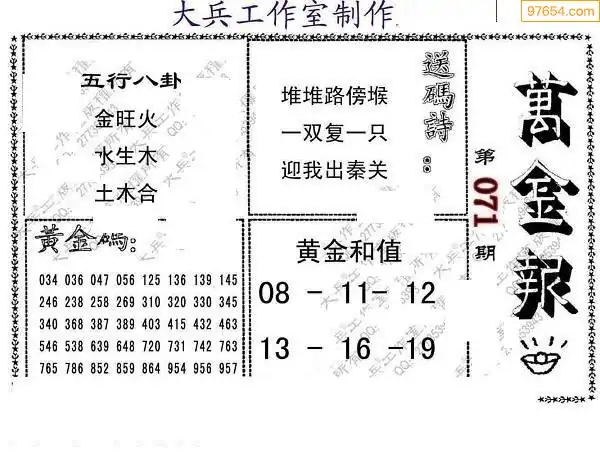 大兵工作室制作
97654.com
五行八卦
金旺火
水生木
土木合
送碼詩：
堆堆路傍堠
一双复一只
迎我出秦关
萬金報
第071期
黃金碼：
034 036 047 056 125 136 139 145
246 238 258 269 310 320 330 345
340 368 387 389 403 415 432 463
546 538 639 648 720 731 742 763
765 786 852 859 864 954 956 957
黄金和值
08 - 11- 12
13 - 16 -19